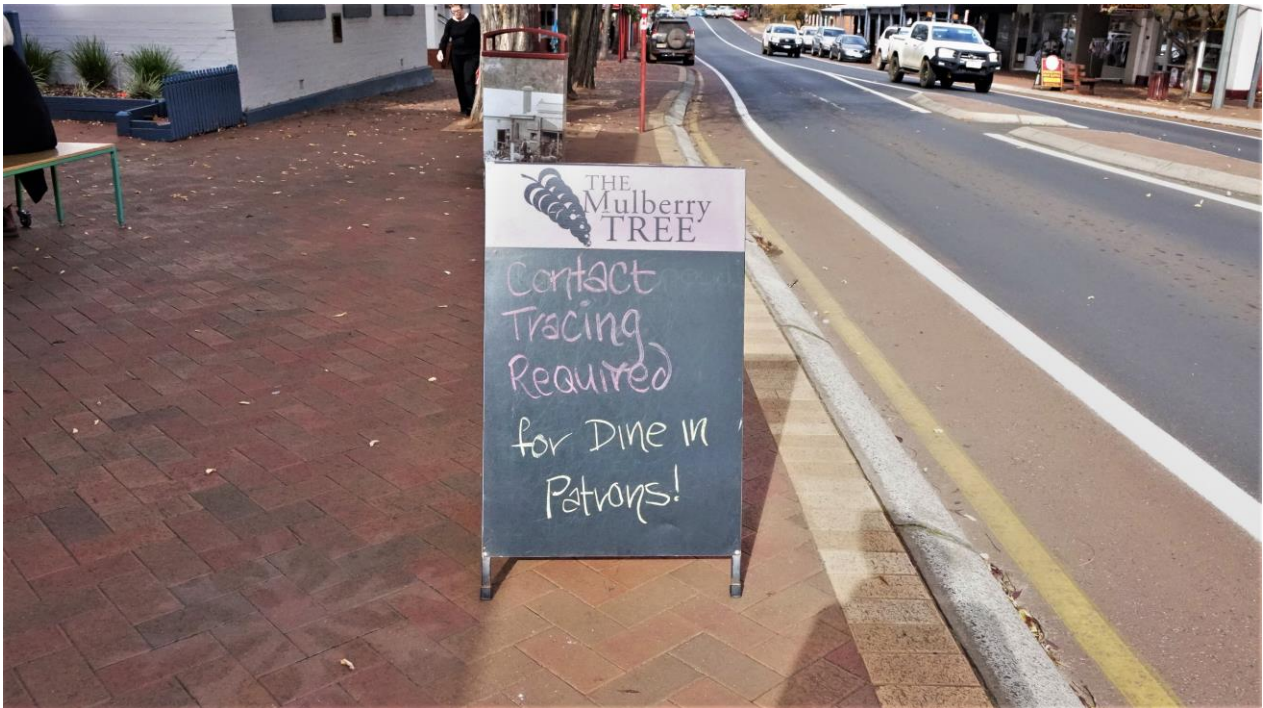 THE
Mulberry
TREE
Contact
Tracing
Required
for Dine in
Patrons!